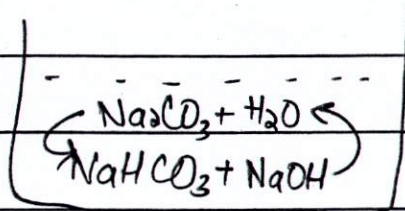 Na₂CO₃ + H₂O
NaHCO₃ + NaOH